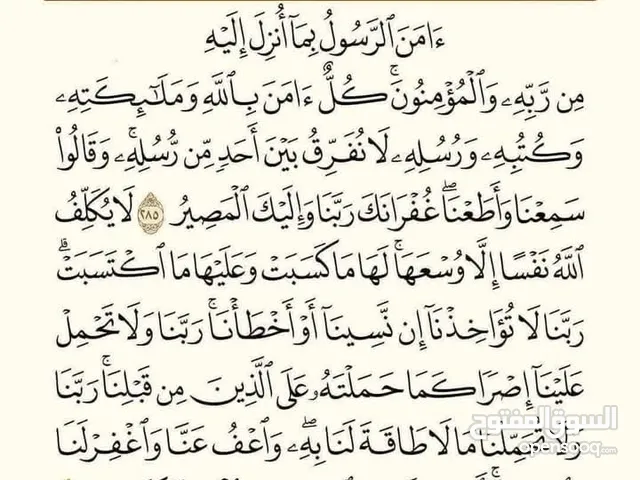 ءَامَنَ ٱلرَّسُولُ بِمَآ أُنزِلَ إِلَيْهِ
مِن رَّبِّهِۦ وَٱلْمُؤْمِنُونَۚ كُلٌّ ءَامَنَ بِٱللَّهِ وَمَلَٰٓئِكَتِهِۦ
وَكُتُبِهِۦ وَرُسُلِهِۦ لَا نُفَرِّقُ بَيْنَ أَحَدٍ مِّن رُّسُلِهِۦۚ وَقَالُوا۟
سَمِعْنَا وَأَطَعْنَاۖ غُفْرَانَكَ رَبَّنَا وَإِلَيْكَ ٱلْمَصِيرُ ٢٨٥ لَا يُكَلِّفُ
ٱللَّهُ نَفْسًا إِلَّا وُسْعَهَاۚ لَهَا مَا كَسَبَتْ وَعَلَيْهَا مَا ٱكْتَسَبَتْۗ
رَبَّنَا لَا تُؤَاخِذْنَآ إِن نَّسِينَآ أَوْ أَخْطَأْنَاۚ رَبَّنَا وَلَا تَحْمِلْ
عَلَيْنَآ إِصْرًا كَمَا حَمَلْتَهُۥ عَلَى ٱلَّذِينَ مِن قَبْلِنَاۚ رَبَّنَا
وَلَا تُحَمِّلْنَا مَا لَا طَاقَةَ لَنَا بِهِۦۖ وَٱعْفُ عَنَّا وَٱغْفِرْ لَنَا
السوق المفتوح
opensooq.com